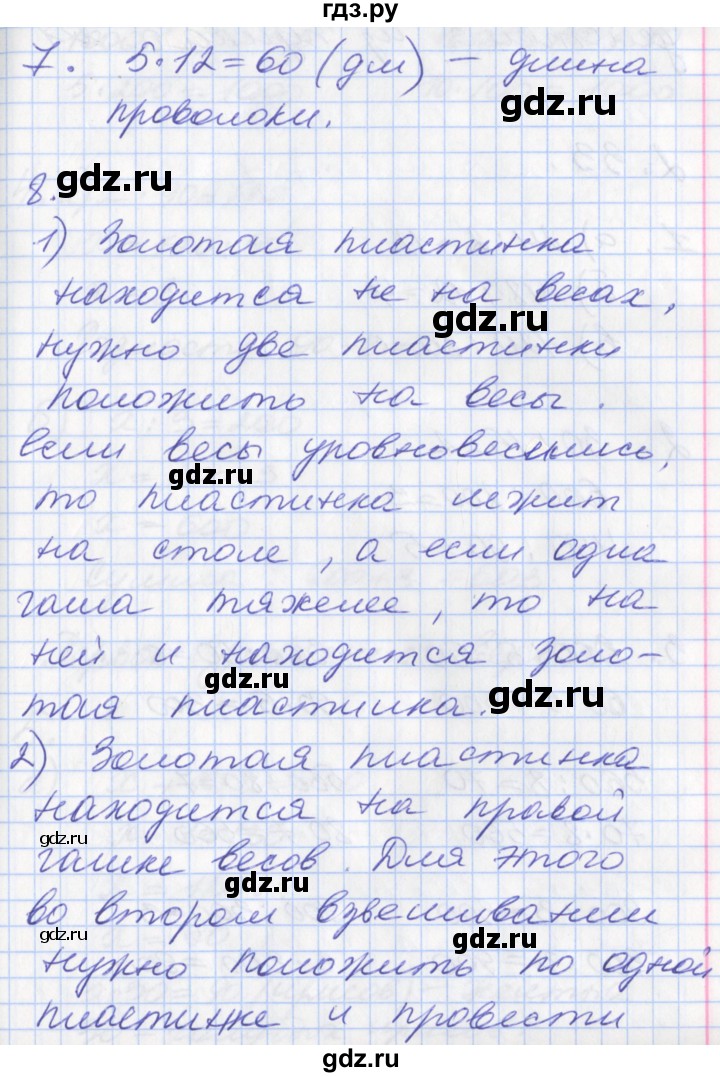 гдз.ру
7. 5·12=60 (дм) – длина
проволоки.
gdz.ru
8.
1) Золотая пластинка
находится не на весах,
gdz.ru
нужно две пластинки
положить на весы.
Если весы уровновесились,
gdz.ru
то пластинка лежит
на столе, а если одна
чаша тяжелее, то на
ней и находится золо-
gdz.ru
gdz.ru
тая пластинка.
2) Золотая пластинка
находится на правой
gdz.ru
чашке весов. Для этого
gdz.ru
во втором взвешивании
gdz.ru
gdz.ru
нужно положить по одной
пластинке и провести
gdz.ru